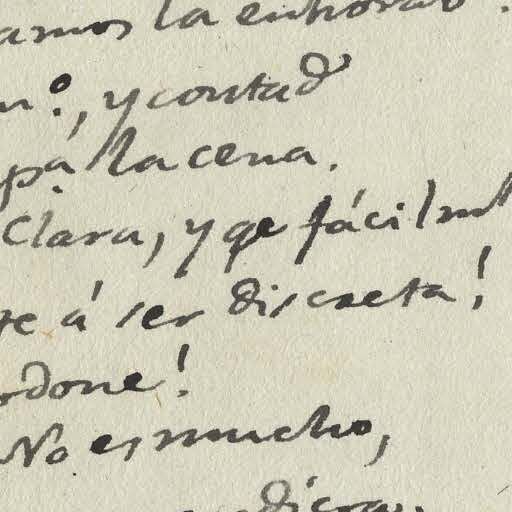 amos la enhorab
n.º, y contad
pa. la cena.
Clara, y qe fácilmt
te á ser discreta!
rdone!
No es mucho,